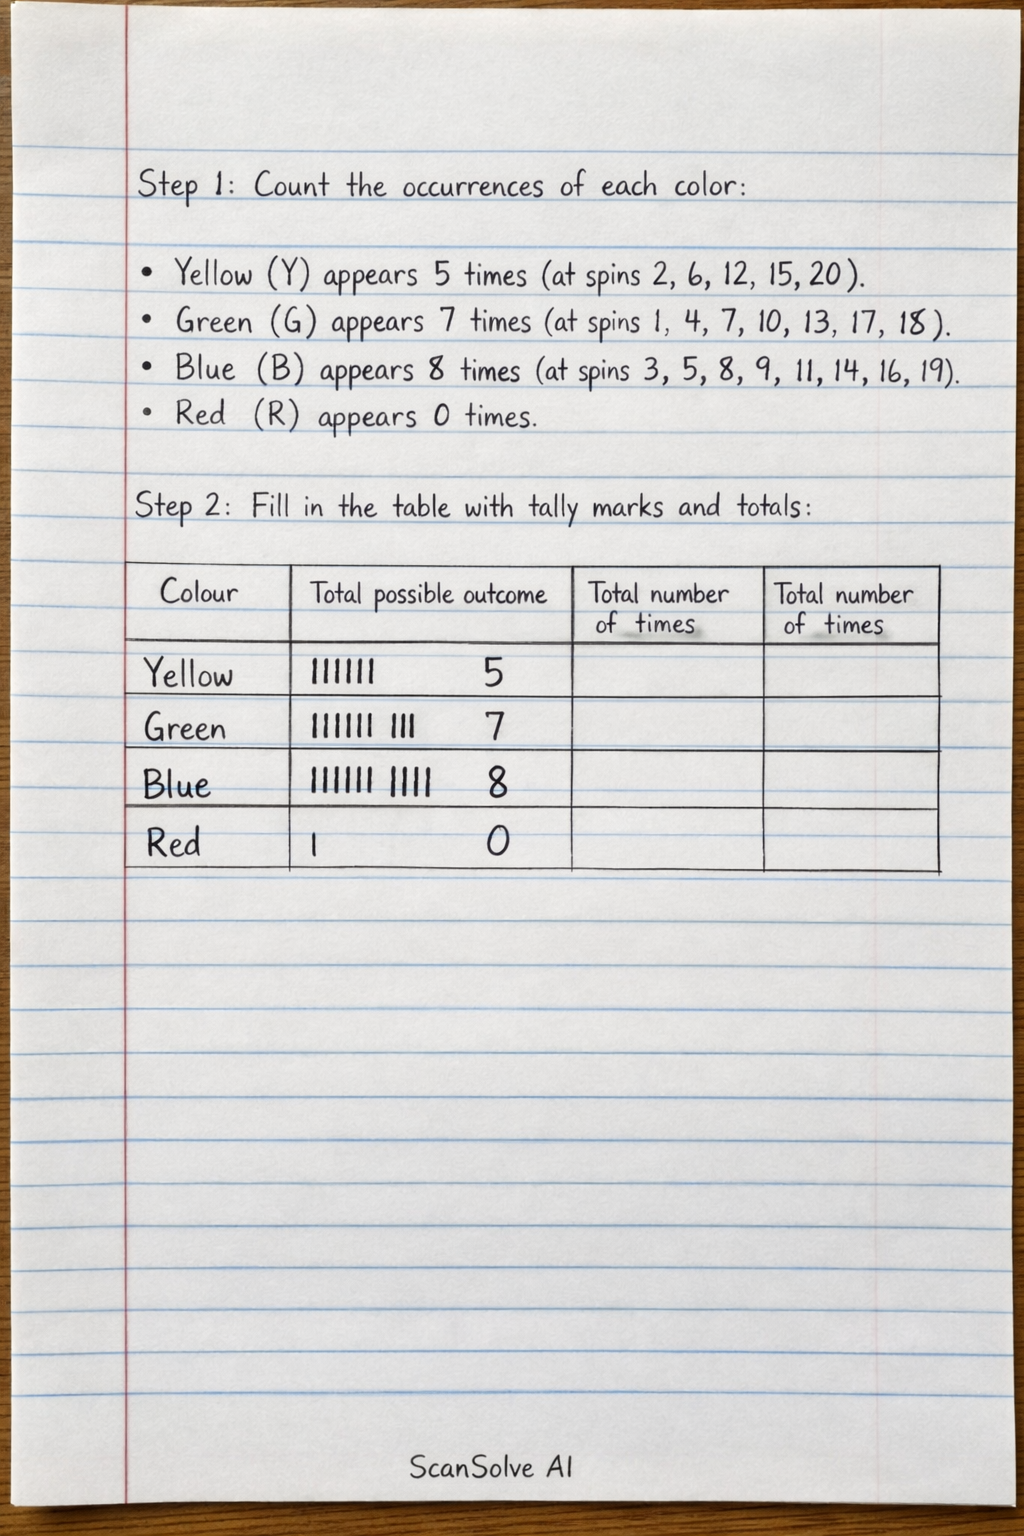 Step 1: Count the occurrences of each color:
• Yellow (Y) appears 5 times (at spins 2, 6, 12, 15, 20).
• Green (G) appears 7 times (at spins 1, 4, 7, 10, 13, 17, 18).
• Blue (B) appears 8 times (at spins 3, 5, 8, 9, 11, 14, 16, 19).
• Red (R) appears 0 times.
Step 2: Fill in the table with tally marks and totals:
Colour Total possible outcome Total number of times Total number of times
Yellow |||||| 5
Green |||||| ||| 7
Blue |||||| |||| 8
Red | 0
ScanSolve AI